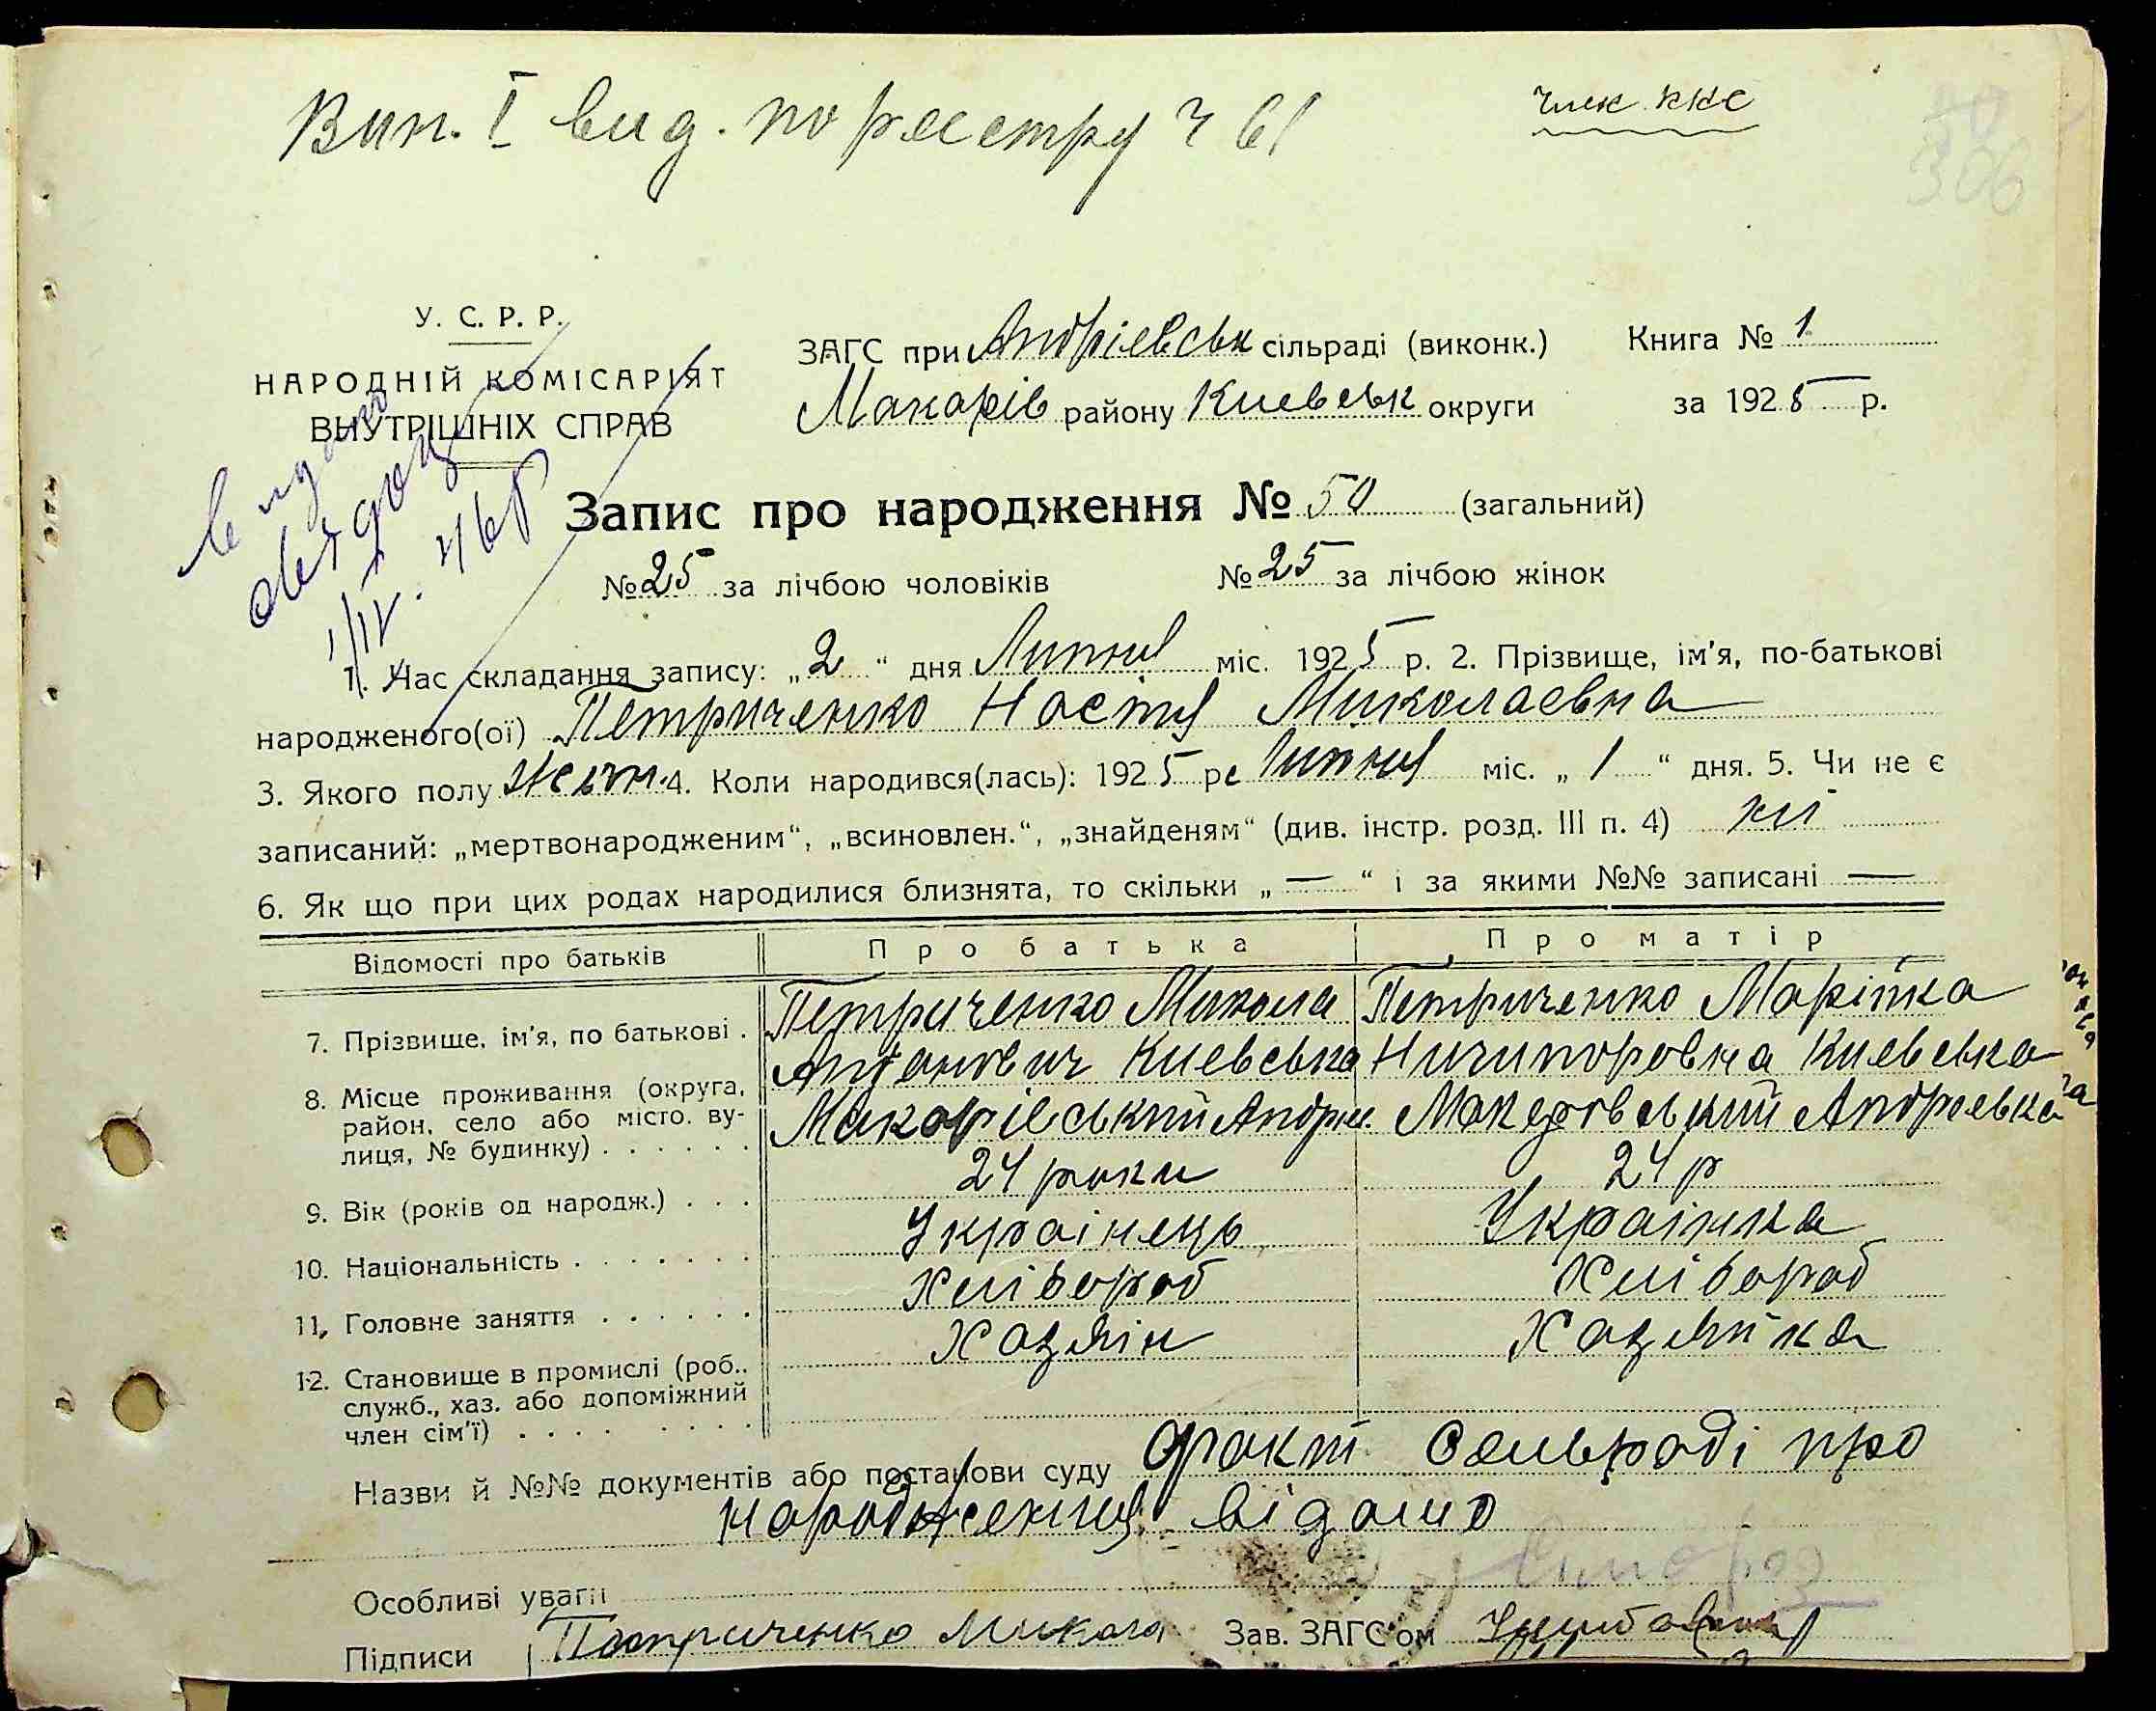 Вип. I вид. по реєстру ч 61
член ККС
306
У. С. Р. Р.
НАРОДНІЙ КОМІСАРІЯТ
ВНУТРІШНІХ СПРАВ
ЗАГС при Андріевськ сільраді (виконк.) Книга № 1
Макарів району Киевськ округи за 1925 р.
Запис про народження № 50 (загальний)
№ 25 за лічбою чоловіків № 25 за лічбою жінок
1. Час складання запису: „2“ дня Липня міс. 1925 р. 2. Прізвище, ім'я, по-батькові
народженого(ої) Петриченко Настя Миколаевна
3. Якого полу 4. Коли народився(лась): 1925 р Липня міс. „1“ дня. 5. Чи не є
записаний: „мертвонародженим“, „всиновлен.“, „знайденям“ (див. інстр. розд. III п. 4) ні
6. Як що при цих родах народилися близнята, то скільки „—“ і за якими №№ записані —
Відомості про батьків Про батька Про матір
7. Прізвище, ім'я, по батькові . Петриченко Микола Петриченко Марійка
Антонович Киевська Ничипоровна Киевська
8. Місце проживання (округа, район, село або місто, ву-
лиця, № будинку) . . . . . . Макарівський Андрие. Макаровський Андреевка
9. Вік (років од народж.) . . . 24 роки 24 р
10. Національність . . . . . . . Українець Українка
11. Головне заняття . . . . . . Хлібороб Хлібороб
12. Становище в промислі (роб., Хазяін Хазяйка
служб., хаз. або допоміжний
член сім'ї) . . . . . . . .
Назви й №№ документів або постанови суду Факт Сельраді про
народження відомо
Особливі уваги
Підписи Петриченко Микола Зав. ЗАГС'ом